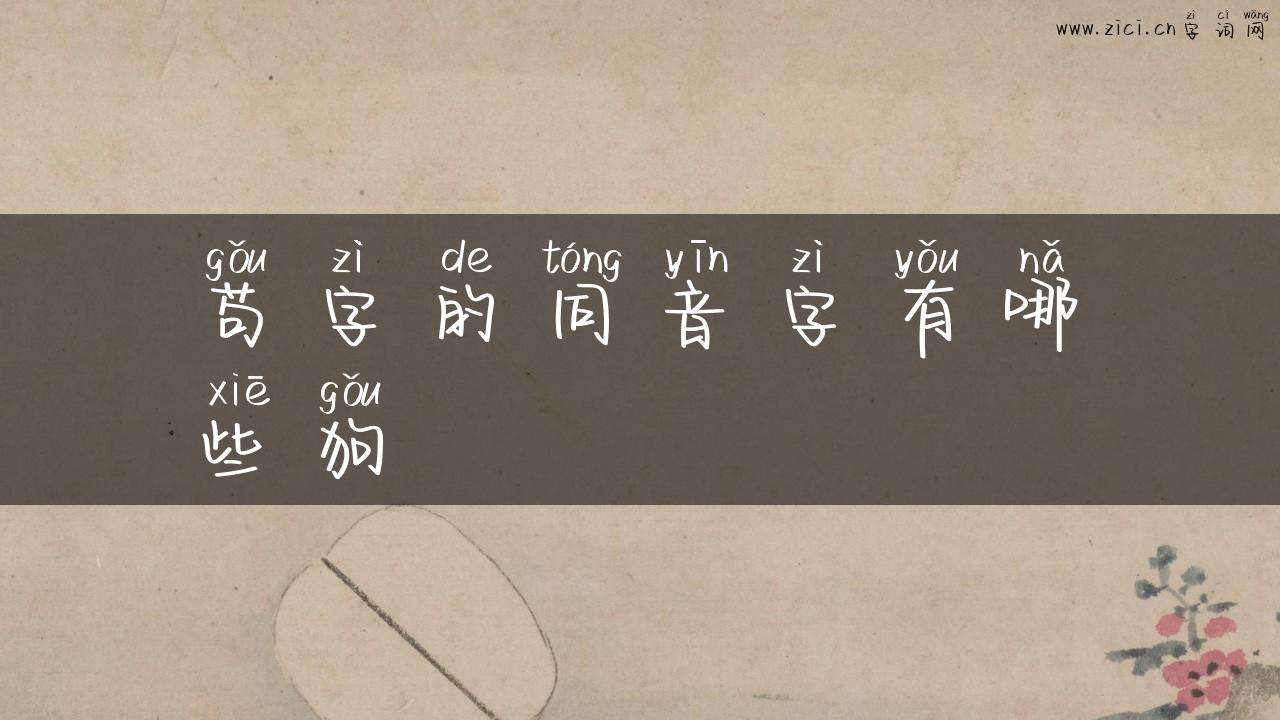 zì cí wǎng
www.zici.cn 字 词 网
gǒu zì de tóng yīn zì yǒu nǎ
苟 字 的 同 音 字 有 哪
xiē gǒu
些 狗